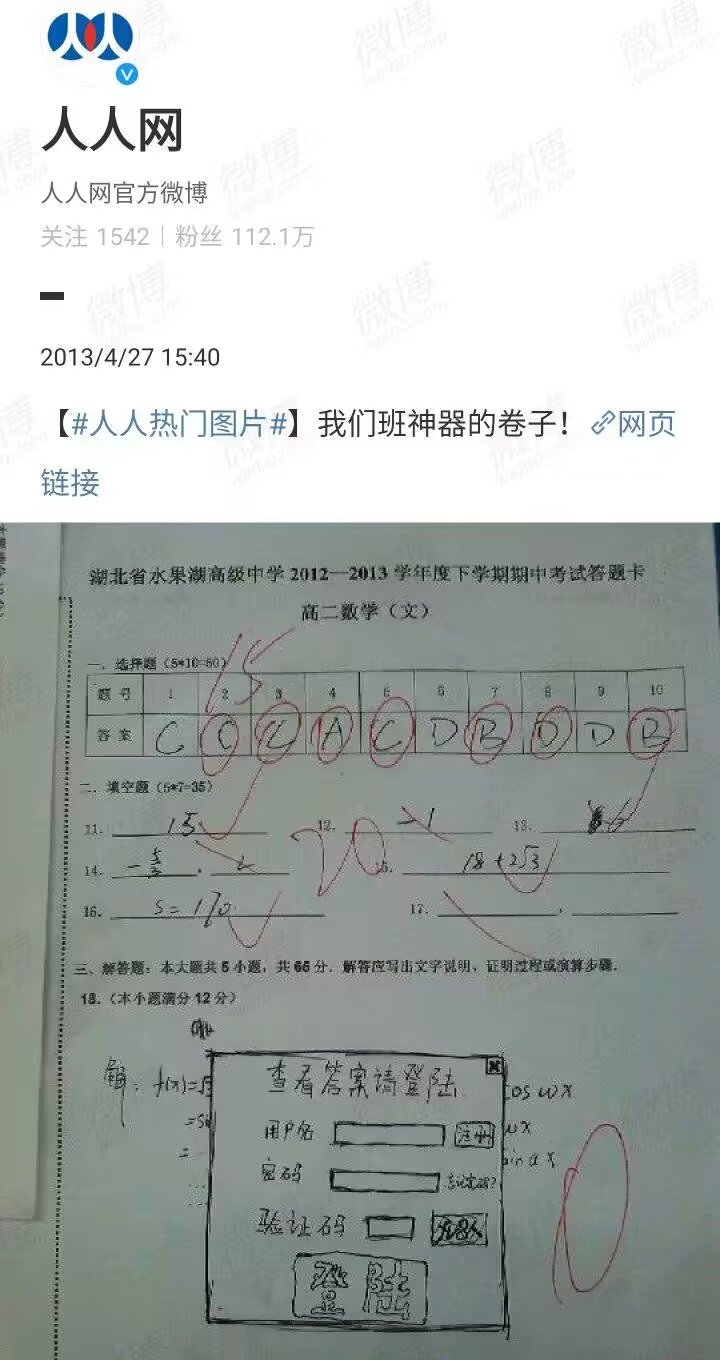 人人网
人人网官方微博
关注 1542 | 粉丝 112.1万
2013/4/27 15:40
【#人人热门图片#】我们班神器的卷子！网页
链接
湖北省水果湖高级中学 2012—2013 学年度下学期期中考试答题卡
高二数学（文）
一、选择题（5*10=50）
15
题号 1 2 3 4 5 6 7 8 9 10
答案 C C C A C D B D D B
二、填空题（5*7=35）
11. 15 12. -1 13. 6
20
14. -5/3 , 15. 18+2√3
16. S=170 17. ,
三、解答题：本大题共 5 小题，共 65 分．解答应写出文字说明，证明过程或演算步骤．
18.（本小题满分 12 分）
解：f(x)= cos ωx
查看答案请登陆
用户名 注册
密码 忘记密码?
验证码
登陆
0
微博
weibo.com